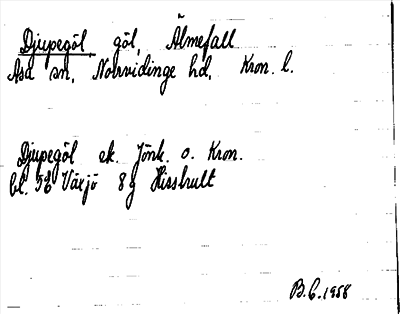 Djupegöl, göl, Älmefall
Asa sn, Norrvidinge hd, Kron. l.
Djupegöl ek. Jönk. o. Kron.
bl. 56 Växjö 8g Hisshult
B.E. 1958